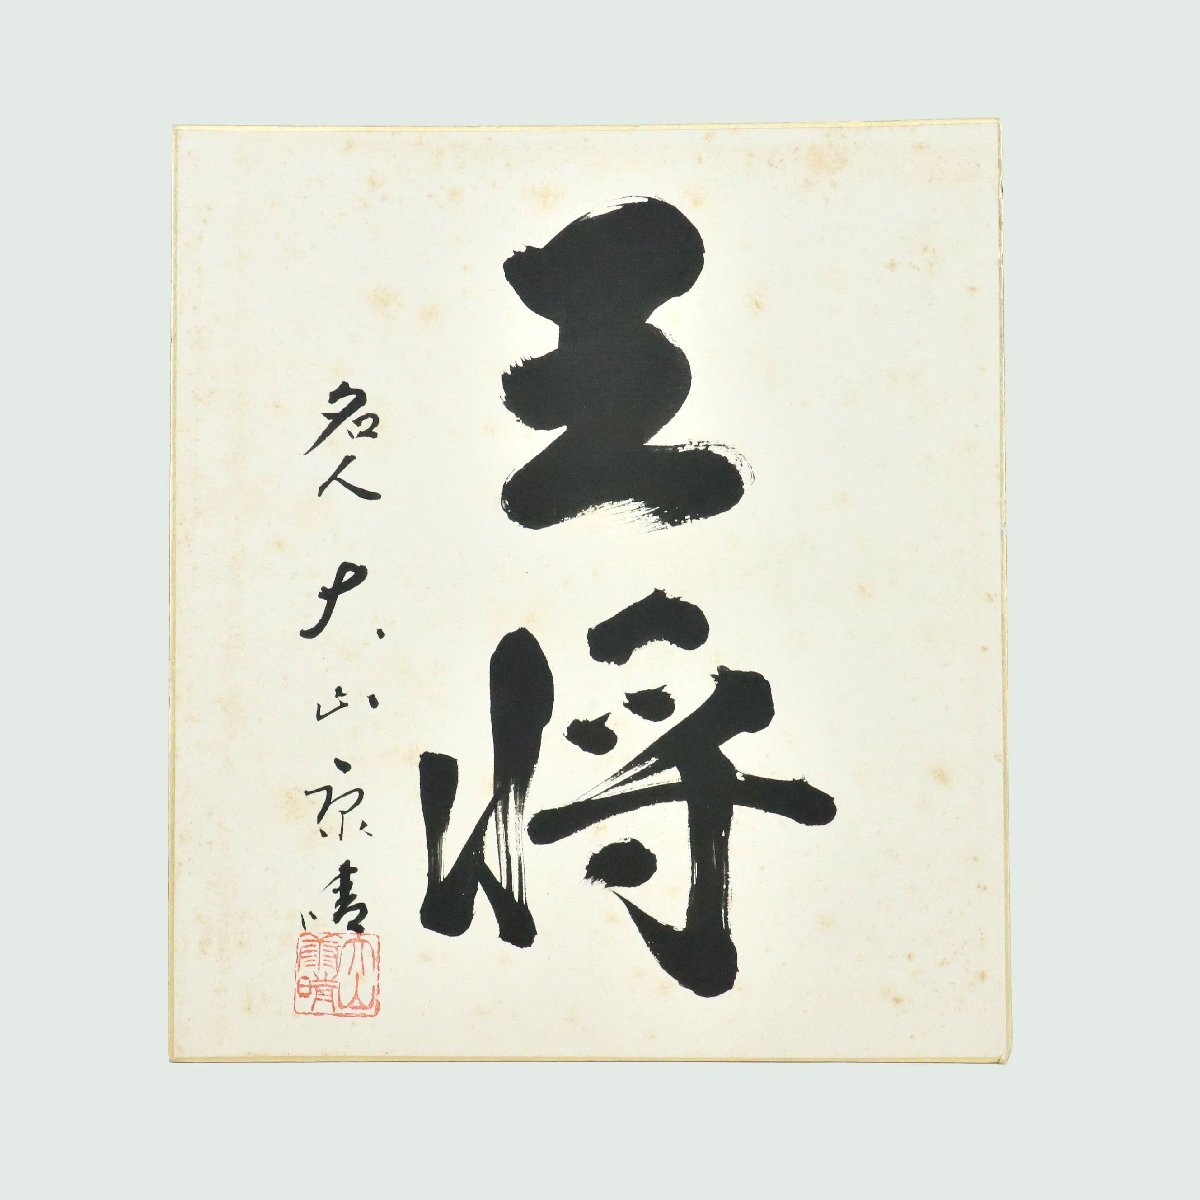 王将
名人 大山康晴
大山康晴